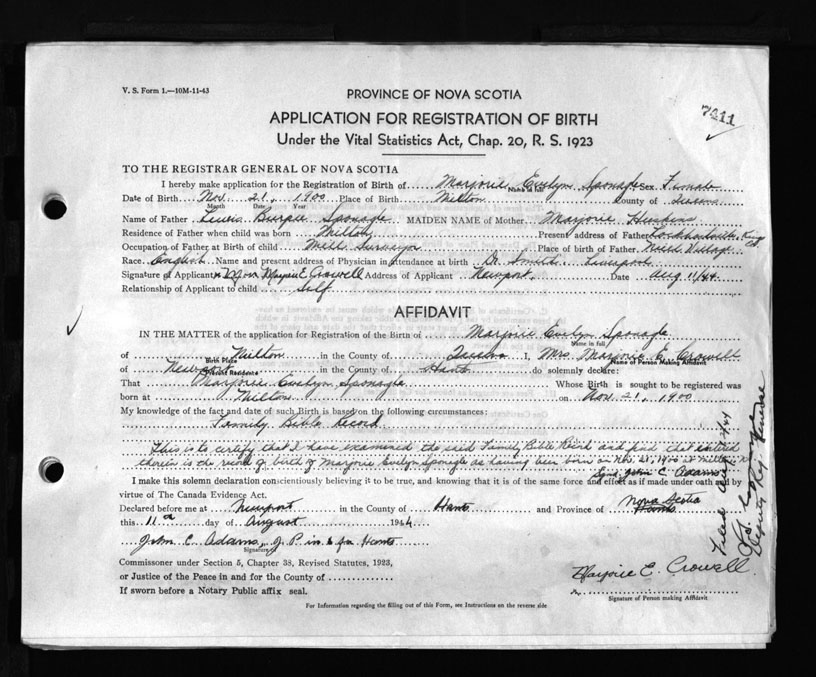 V. S. Form 1.—10M-11-43
PROVINCE OF NOVA SCOTIA
7411
APPLICATION FOR REGISTRATION OF BIRTH
Under the Vital Statistics Act, Chap. 20, R. S. 1923
TO THE REGISTRAR GENERAL OF NOVA SCOTIA
I hereby make application for the Registration of Birth of Marjorie Evelyn Sponagle Sex Female
Name in full
Date of Birth Nov 21, 1900 Place of Birth Milton County of Queens
Month Date Year
Name of Father Lewis Burpee Sponagle MAIDEN NAME of Mother Marjorie Huskins
Residence of Father when child was born Milton Present address of Father Lockhartville, Kings Co
Occupation of Father at Birth of child Mill Surveyor Place of Birth of Father Mill Village
Race English Name and present address of Physician in attendance at birth Dr. Smith Liverpool
Signature of Applicant x Mrs Marjorie E. Crowell Address of Applicant Newport Date Aug 11/44
Relationship of Applicant to child Self
AFFIDAVIT
IN THE MATTER of the application for Registration of the Birth of Marjorie Evelyn Sponagle
Name in full
of Milton in the County of Queens I, Mrs. Marjorie E. Crowell
Birth Place Name of Person Making Affidavit
of Newport in the County of Hants do solemnly declare:
Present Residence
That Marjorie Evelyn Sponagle Whose Birth is sought to be registered was
born at Milton on Nov. 21, 1900
My knowledge of the fact and date of such Birth is based on the following circumstances:
Family Bible Record.
This is to certify that I have examined the said Family Bible Record and find that entered
therein is the record of birth of Marjorie Evelyn Sponagle as having been born on Nov. 21, 1900 at Milton
John C Adams
I make this solemn declaration conscientiously believing it to be true, and knowing that it is of the same force and effect as if made under oath and by
virtue of The Canada Evidence Act.
Declared before me at Newport in the County of Hants and Province of Nova Scotia
Hants
this 11th day of August 1944
John C. Adams, J. P. in & for Hants
Signature
Commissioner under Section 5, Chapter 38, Revised Statutes, 1923,
or Justice of the Peace in and for the County of
If sworn before a Notary Public affix seal.
Marjorie E. Crowell.
Signature of Person making Affidavit
For Information regarding the filling out of this Form, see Instructions on the reverse side
Deputy Reg General